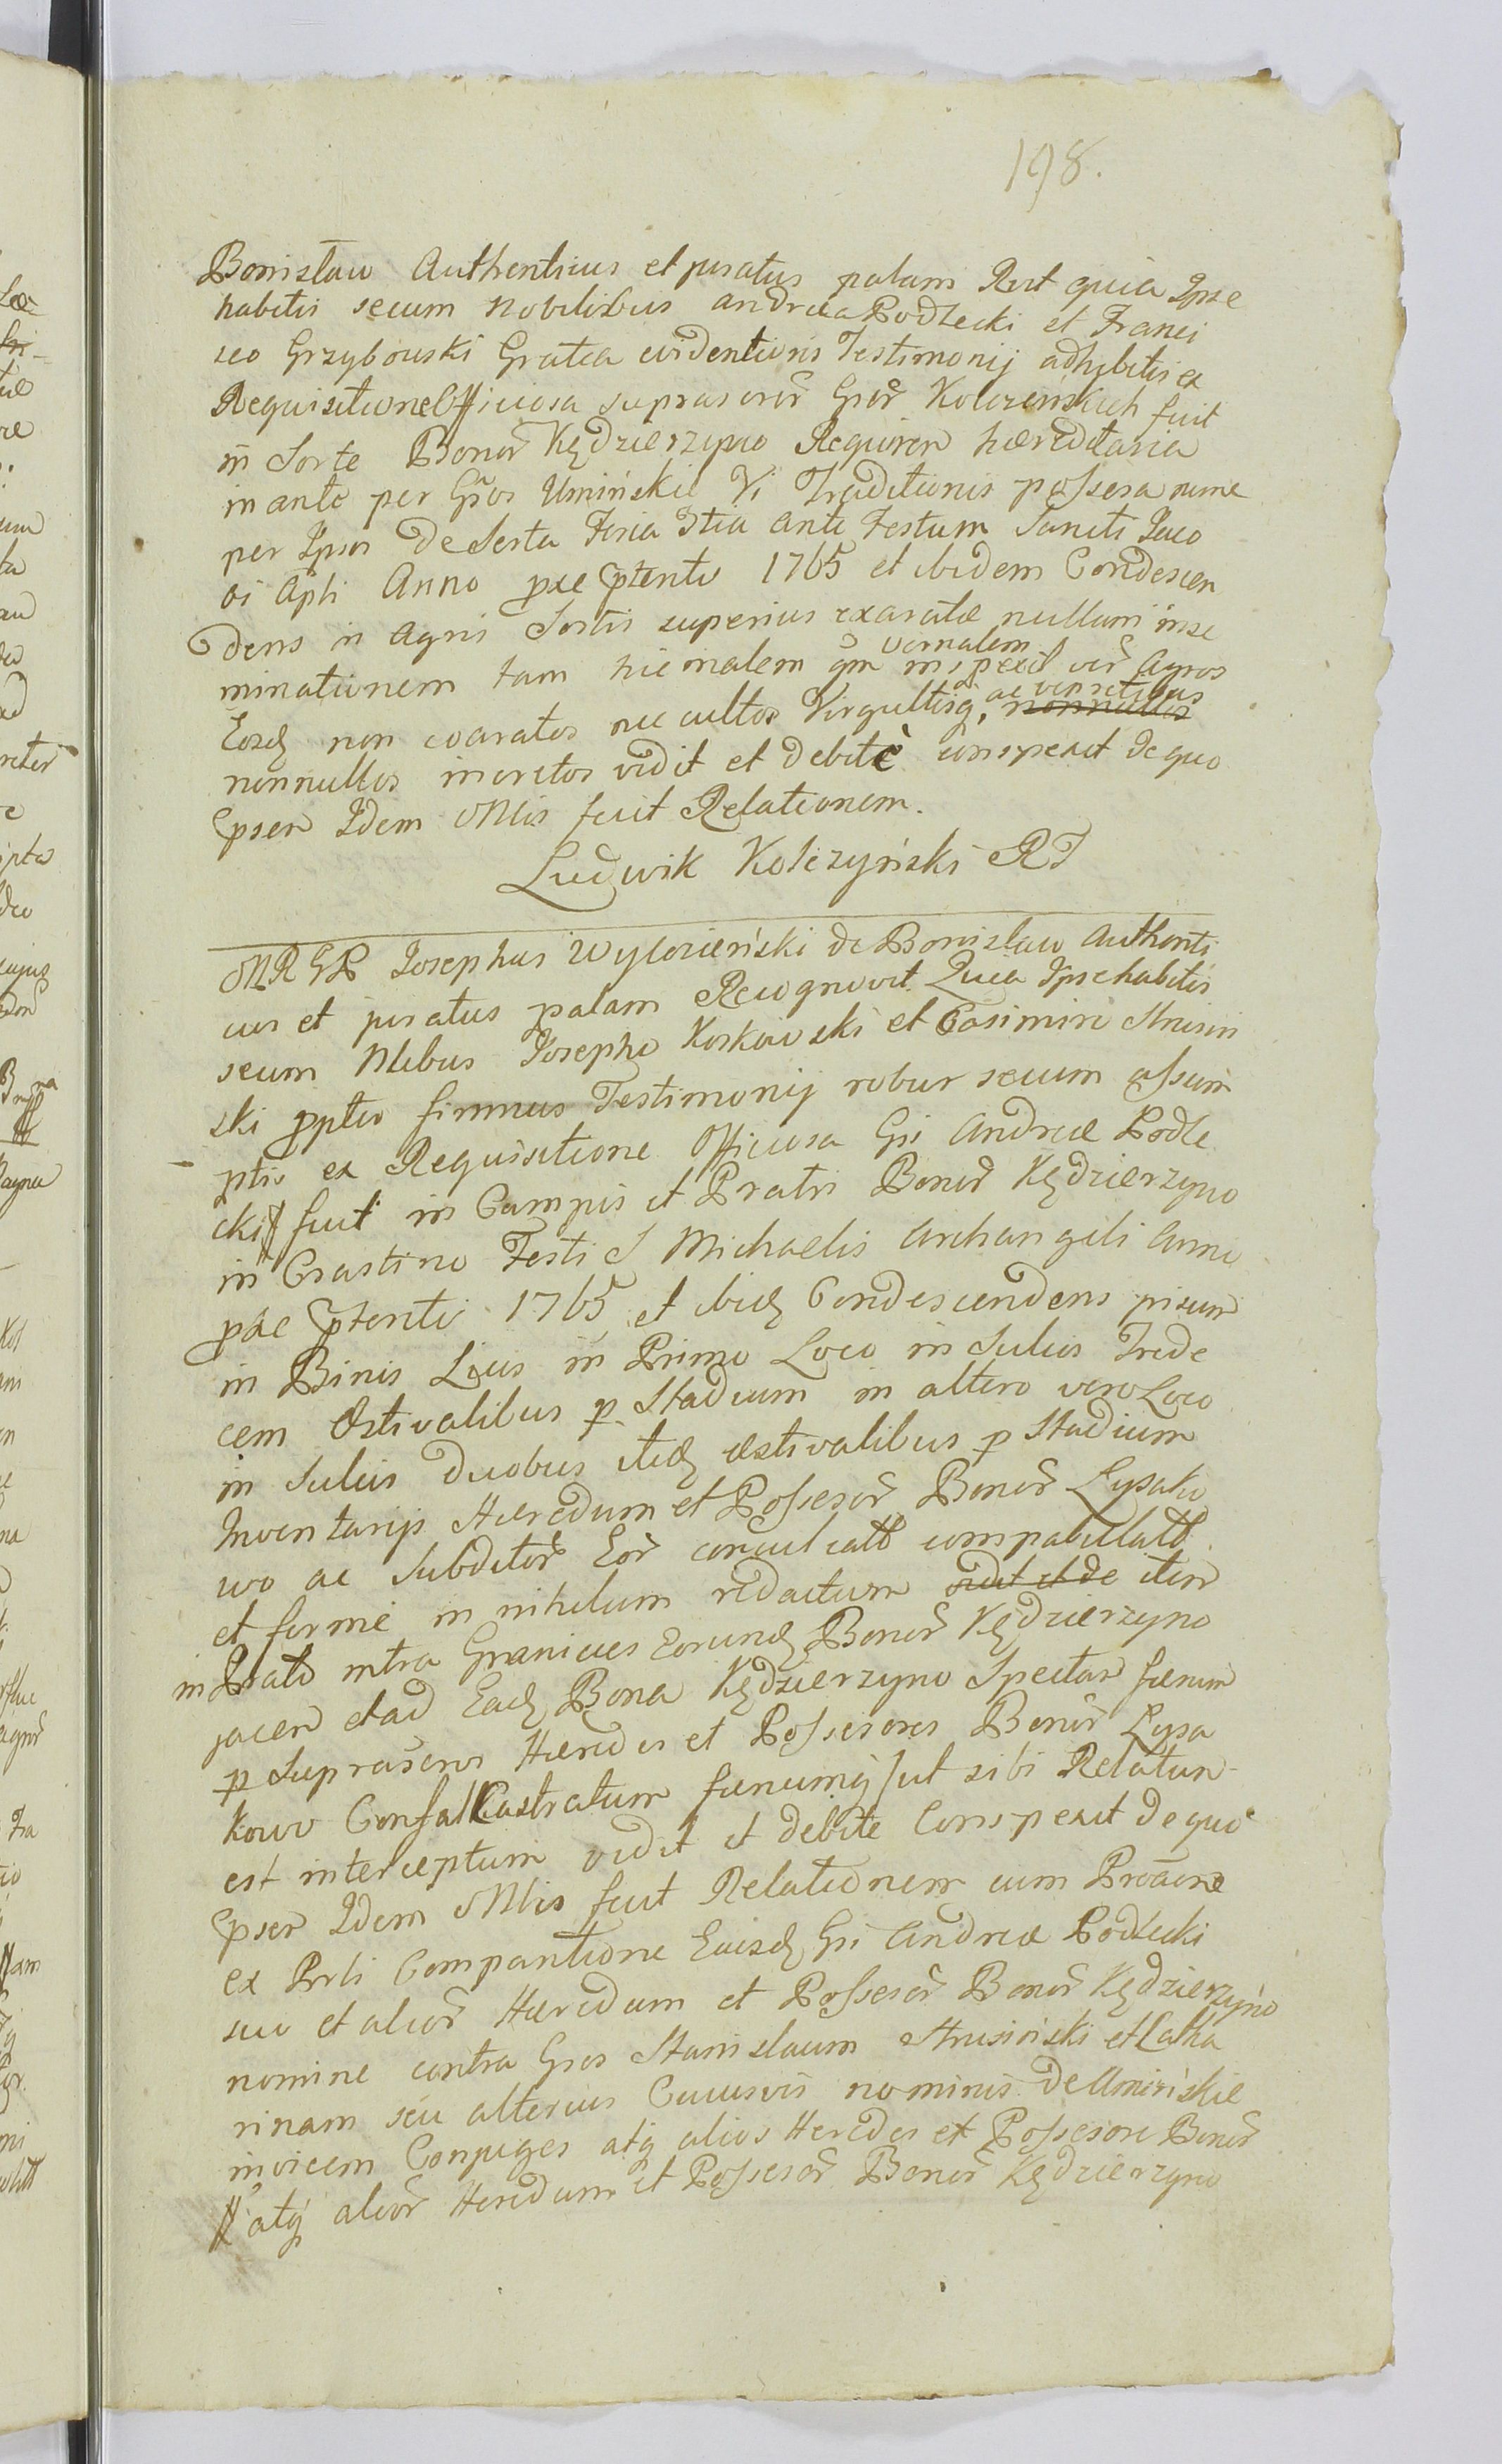 198.
Bonislaw Authenticus et juratus palam Rert quia Ipse
habitis secum Nobilibus Andrea Podlecki et Franci
sco Grzybowski Gratia evidentioris Testimonij adhibitis ex
Requisitione Officiosa suprascror Gror Kolczynskich fuit
in Sorte Bonor Kędzierzyno Requiren haereditaria
in ante per Gros Uminskie Vi Traditionis possessa nunc
per Ipsos Deserta Feria 3tia ante Festum Sancti Jaco
bi Apli Anno prae ptenti 1765 et ibidem Condescen
dens in Agris Sortis superius exaratae nullam inse
minationem tam hiemalem qm vernalem inspexit ver Agros
Eosd non coaratos nec cultos Virgultisq, ac vepretibus nonnullos
nonnullos incretos vidit et debitè conspexit de quo
pser Idem Mlis fecit Relationem.
Ludwik Kolczyński RT
MRGR Josephus Wylozieński de Bonislaw Authenti
cus et juratus palam Recognovit Quia Ipse habitis
secum Nlibus Josepho Koskowski et Casimiro Strusin
ski ppter firmius Testimonij robur secum assum
ptis ex Requisitione Officiosa Gsi Andreae Podle
cki # fuit in Campis et Pratis Bonor Kędzierzyno
in Crastino Festi S Michaelis Archangeli Anno
prae ptenti 1765 et ibid Condescendens pisum
in Binis Locis in Primo Loco in Sulcis Trede
cem Æstivalibus p Stadium in altero vero Loco
in Sulcis duobus itid æstivalibus p Stadium
Inventarijs Hæredum et Possessor Bonor Lysako
wo ac Subditor Eor conculcatt compabulatt
et fermè in nihilum redactum vidit et de item
in Prato intra Granicies Eorund Bonor Kędzierzyno
jacen et ad Ead Bona Kędzierzyno Spectan fænum
p Suprascros Hæredes et Possessores Bonor Lysa
kowo Confalcastratum fænumq ut sibi Relatum
est interceptum vidit et debite Conspexit de quo
pser Idem Mlis fecit Relationem cum Proaone
ex Prti Compantione Eiusd Gsi Andreæ Podlecki
suo et alior Hæredum et Possessor Bonor Kędzierzyno
nomine contra Gros Stanislaum Strusinski et Catha
rinam seu alterius Cuiusvis nominis de Uminskie
invicem Conjuges atq alios Heredes et Possessores Bonor
# atq alior Heredum et Possessor Bonor Kędzierzyno